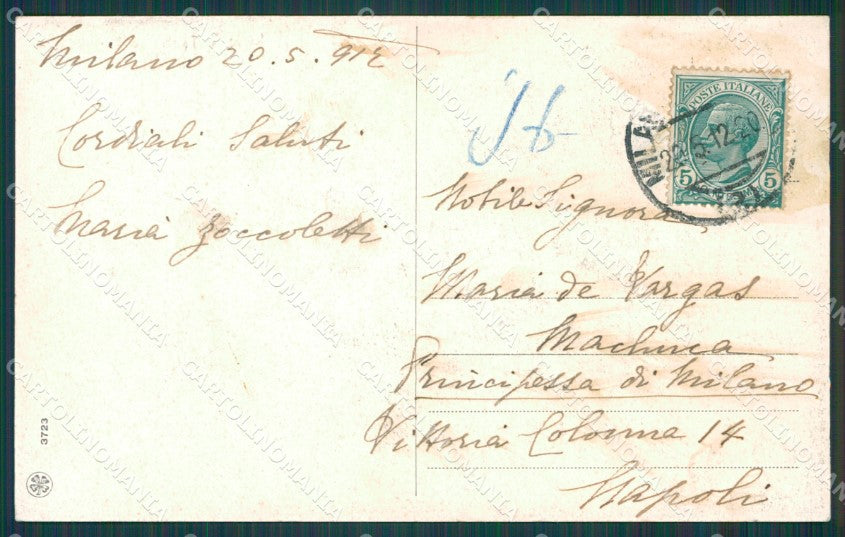 Milano 20.5.912
Cordiali Saluti
Maria Zoccoletti
Nobile Signora
Maria de Vargas
Machuca
Principessa di Milano
Vittoria Colonna 14
Napoli
POSTE ITALIANE
5 5
MILA
12.20
3723
CARTOLINOMANIA